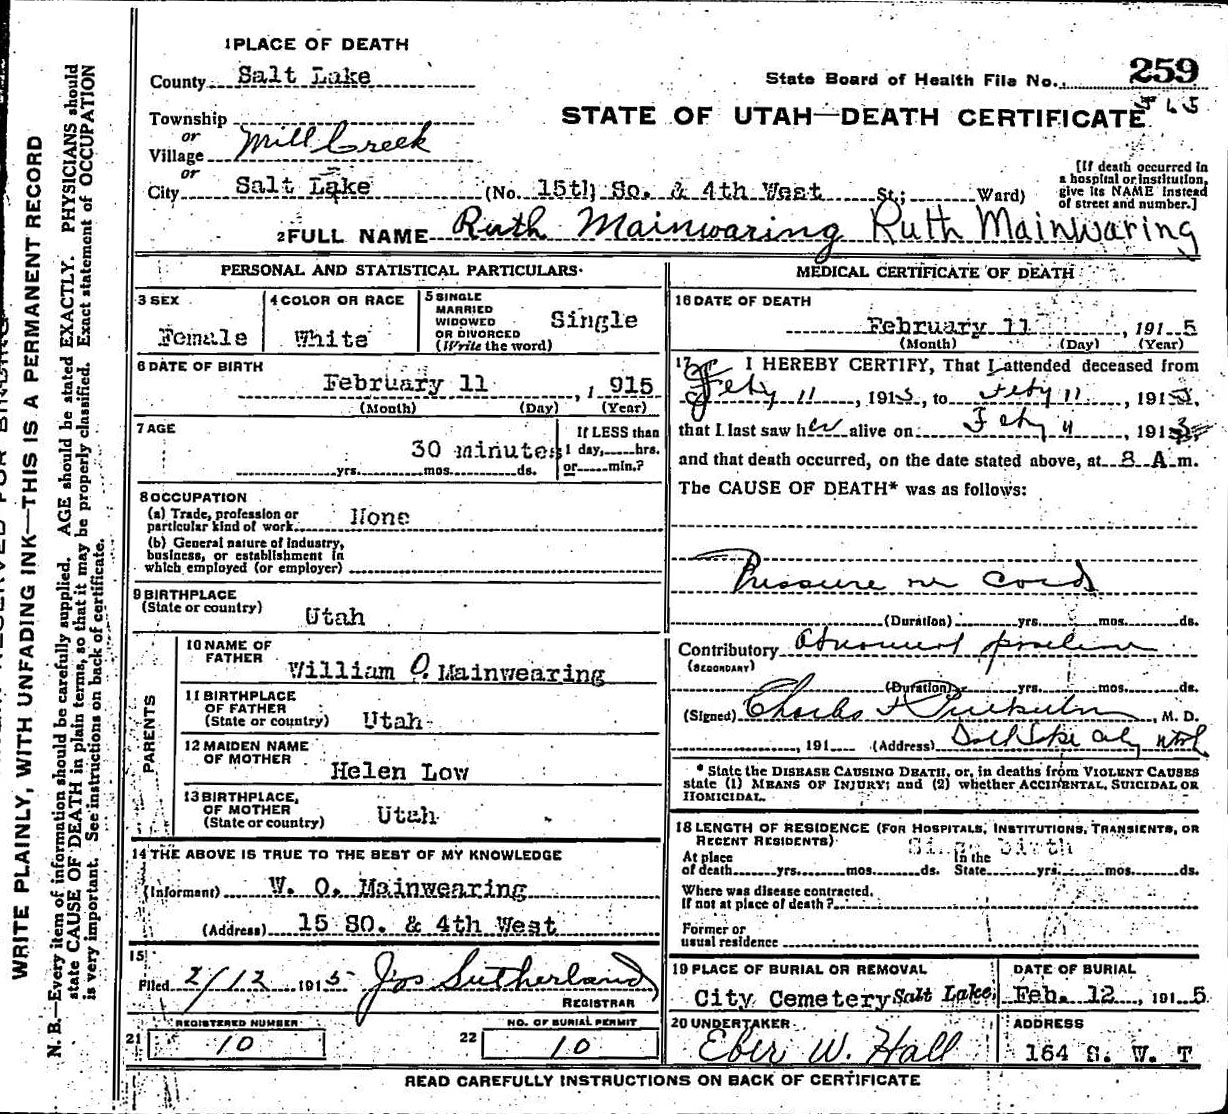 1 PLACE OF DEATH
County Salt Lake
State Board of Health File No. 259
565
STATE OF UTAH—DEATH CERTIFICATE
Township
or
Village Mill Creek
or
City Salt Lake (No. 15th So. & 4th West St.; Ward)
[If death occurred in
a hospital or institution,
give its NAME instead
of street and number.]
2 FULL NAME Ruth Mainwaring Ruth Mainwaring
PERSONAL AND STATISTICAL PARTICULARS
3 SEX
Female
4 COLOR OR RACE
White
5 SINGLE
MARRIED
WIDOWED
OR DIVORCED
(Write the word)
Single
6 DATE OF BIRTH
February 11, 915
(Month) (Day) (Year)
7 AGE
30 minutes
yrs. mos. ds.
If LESS than
1 day, hrs.
or min.?
8 OCCUPATION
(a) Trade, profession or
particular kind of work None
(b) General nature of industry,
business, or establishment in
which employed (or employer)
9 BIRTHPLACE
(State or country)
Utah
PARENTS
10 NAME OF
FATHER
William O. Mainwearing
11 BIRTHPLACE
OF FATHER
(State or country) Utah
12 MAIDEN NAME
OF MOTHER
Helen Low
13 BIRTHPLACE,
OF MOTHER
(State or country) Utah
14 THE ABOVE IS TRUE TO THE BEST OF MY KNOWLEDGE
(Informant) W. O. Mainwearing
(Address) 15 SO. & 4th West
15
Filed 2/12 1915 Jos Sutherland
REGISTRAR
REGISTERED NUMBER
21 10
NO. OF BURIAL PERMIT
22 10
MEDICAL CERTIFICATE OF DEATH
16 DATE OF DEATH
February 11, 1915
(Month) (Day) (Year)
17 I HEREBY CERTIFY, That I attended deceased from
Feby 11, 1915, to Feby 11, 1915
that I last saw her alive on Feby 11, 191
and that death occurred, on the date stated above, at 8 A m.
The CAUSE OF DEATH* was as follows:
Pressure on Cord
(Duration) yrs. mos. ds.
Contributory
(SECONDARY)
(Duration) yrs. mos. ds.
(Signed) Charles F, M. D.
, 191 (Address) Salt Lake City Utah
* State the DISEASE CAUSING DEATH, or, in deaths from VIOLENT CAUSES
state (1) MEANS OF INJURY; and (2) whether ACCIDENTAL, SUICIDAL OR
HOMICIDAL.
18 LENGTH OF RESIDENCE (FOR HOSPITALS, INSTITUTIONS, TRANSIENTS, OR
RECENT RESIDENTS)
Since birth
At place
of death yrs. mos. ds.
In the
State yrs. mos. ds.
Where was disease contracted.
If not at place of death?
Former or
usual residence
19 PLACE OF BURIAL OR REMOVAL
City Cemetery Salt Lake,
DATE OF BURIAL
Feb. 12, 1915
20 UNDERTAKER
Eber W. Hall
ADDRESS
164 S. W. T
READ CAREFULLY INSTRUCTIONS ON BACK OF CERTIFICATE
WRITE PLAINLY, WITH UNFADING INK—THIS IS A PERMANENT RECORD
N. B.—Every item of information should be carefully supplied. AGE should be stated EXACTLY. PHYSICIANS should
state CAUSE OF DEATH in plain terms, so that it may be properly classified. Exact statement of OCCUPATION
is very important. See instructions on back of certificate.